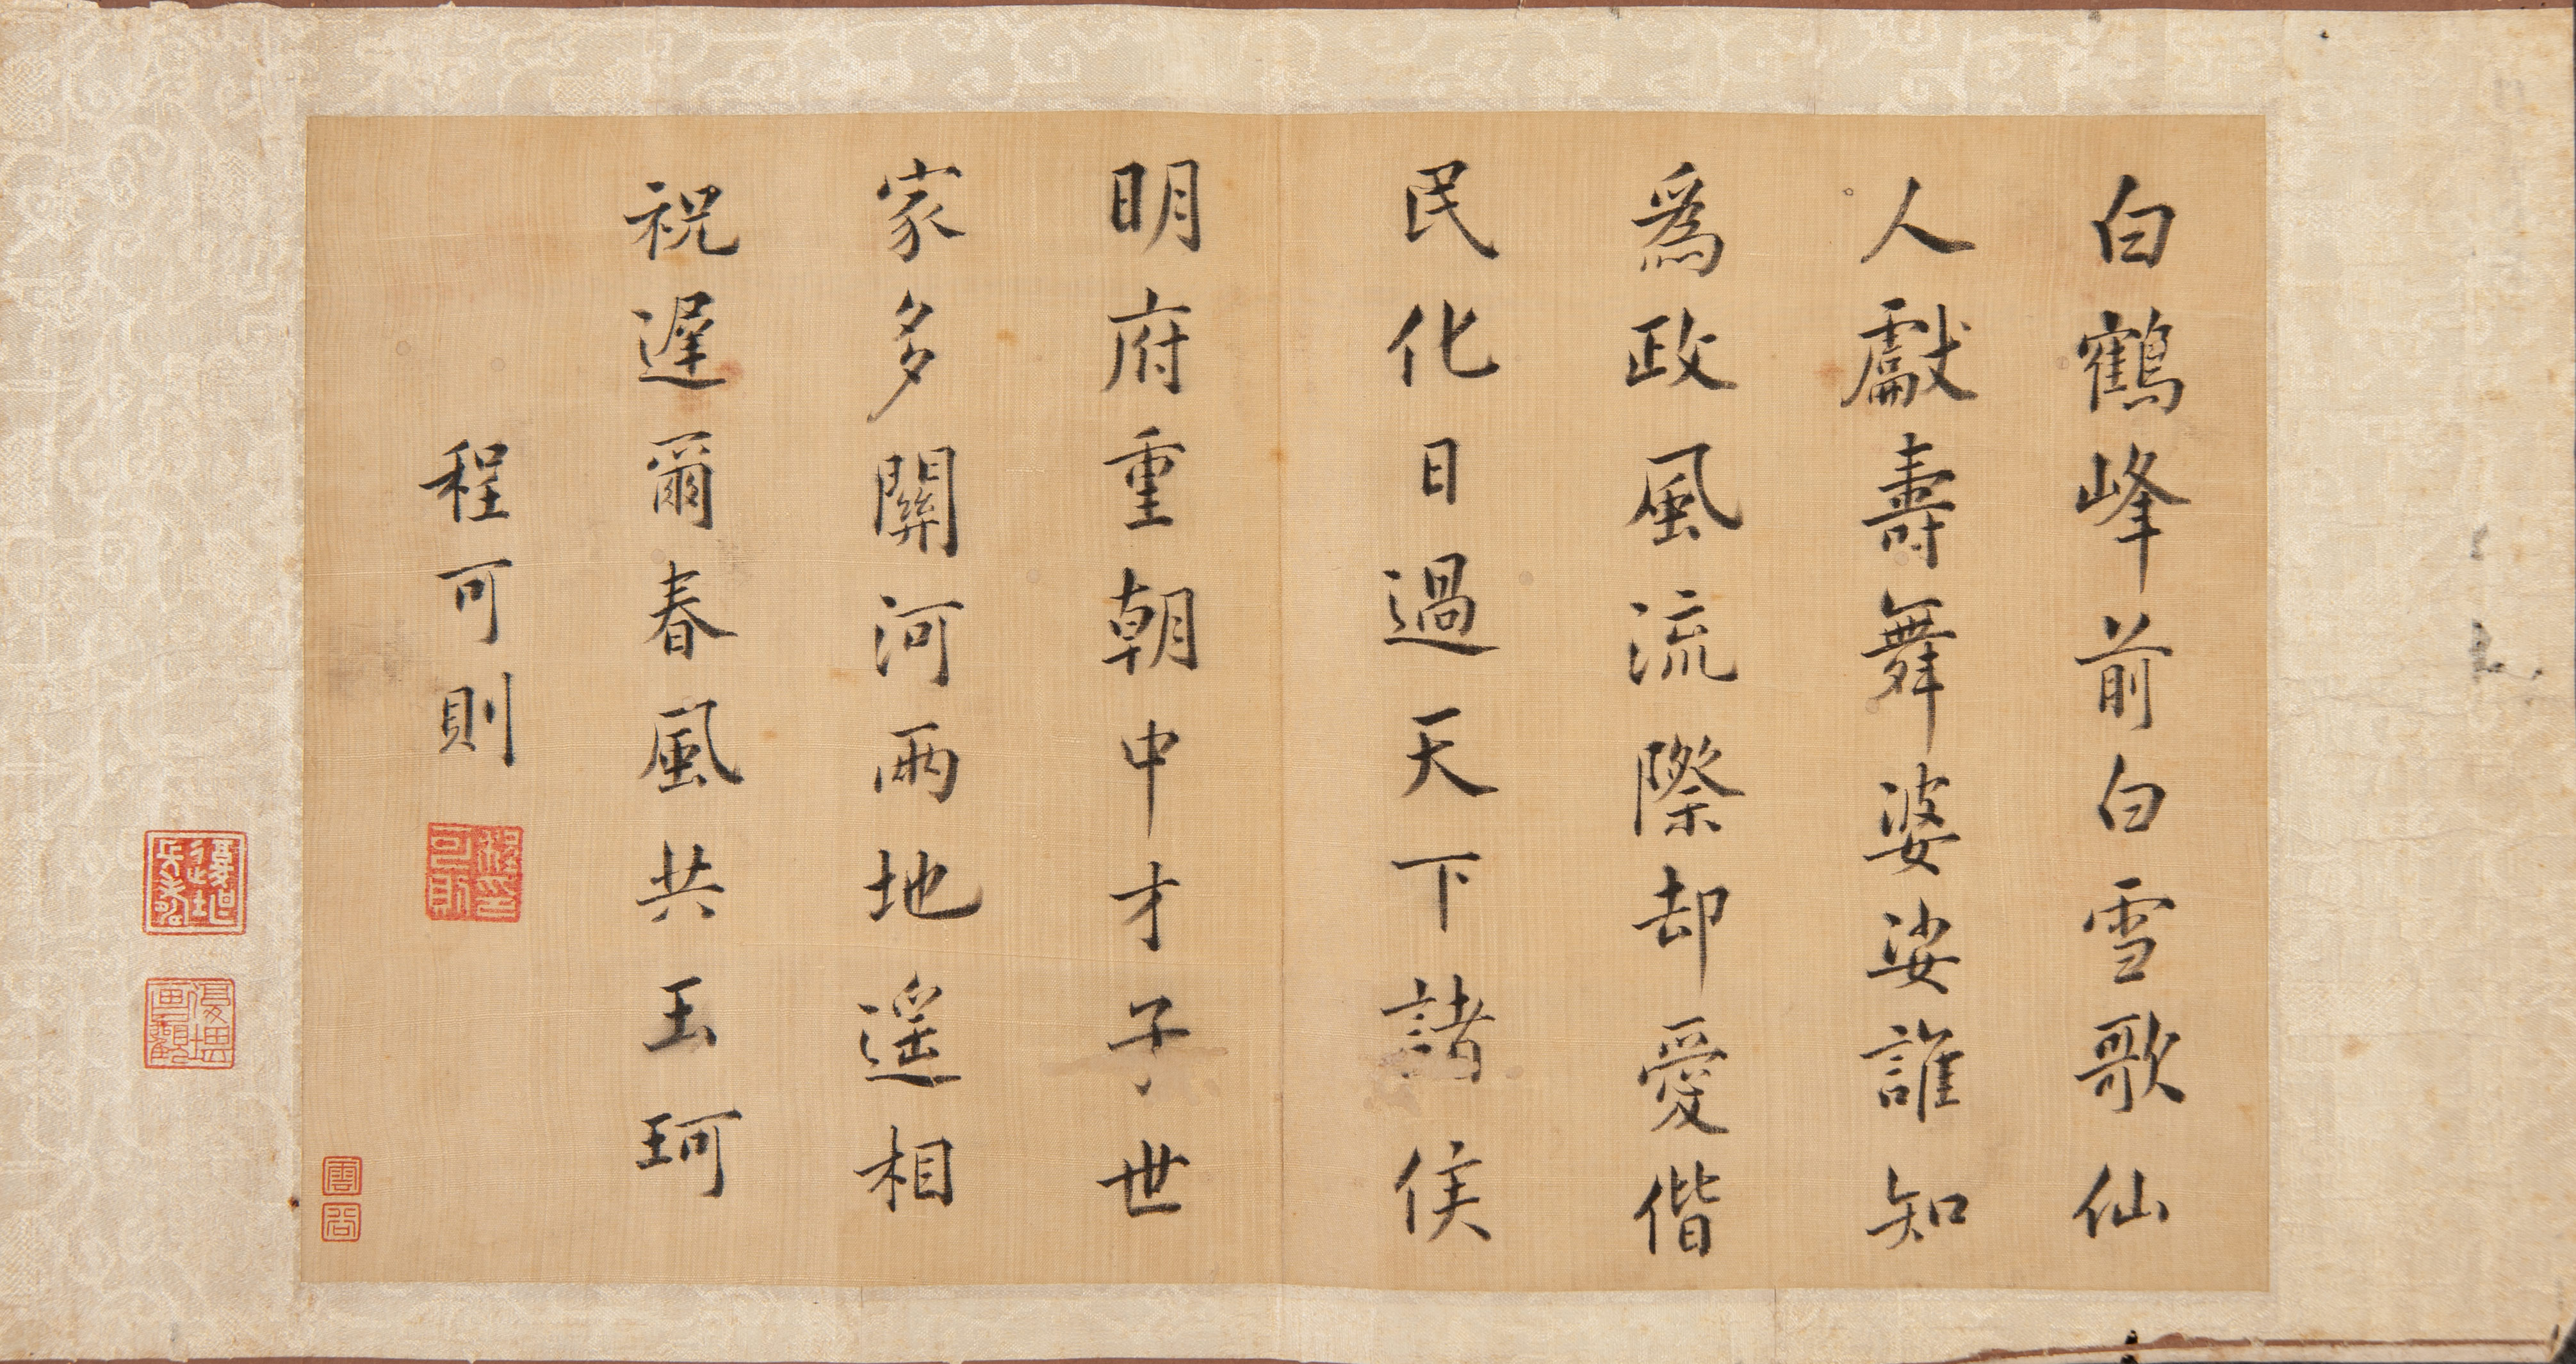 白鶴峰前白雪歌仙
人獻壽舞婆娑誰知
爲政風流際却愛偕
民化日過天下諸侯
明府重朝中才子世
家多關河兩地遥相
祝遲爾春風共玉珂
程可則
程可則印